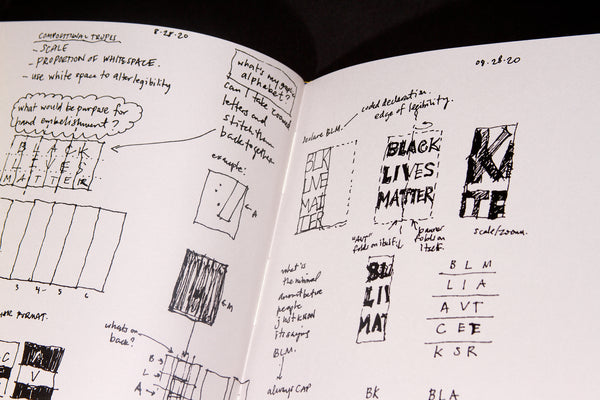 COMPOSITIONAL TROPES
8.28.20
- SCALE
- PROPORTION OF WHITESPACE.
- USE WHITE SPACE TO ALTER LEGIBILITY
what would be purpose for
hand embellishment?
B L A C K
L I V E S
M A T T E R
3 4 5 6
FORMAT.
C
V
what's my
alphabet?
can I take
letters and
stitch them
back together
example:
A
M
what's on
back?
B
L
A
09.28.20
coded declaration.
edge of legibility.
declare BLM.
BLK
LIVE
MAT
TER
BLACK
LIVES
MATTER
K
TE
"AVT"
folds on itself
banner
folds on
itself.
scale/zoom.
what is
the minimal
amount before
people
just know
its saying
BLM.
always CAP
BL
LI
MAT
B L M
L I A
A V T
C E E
K S R
BK
BLA